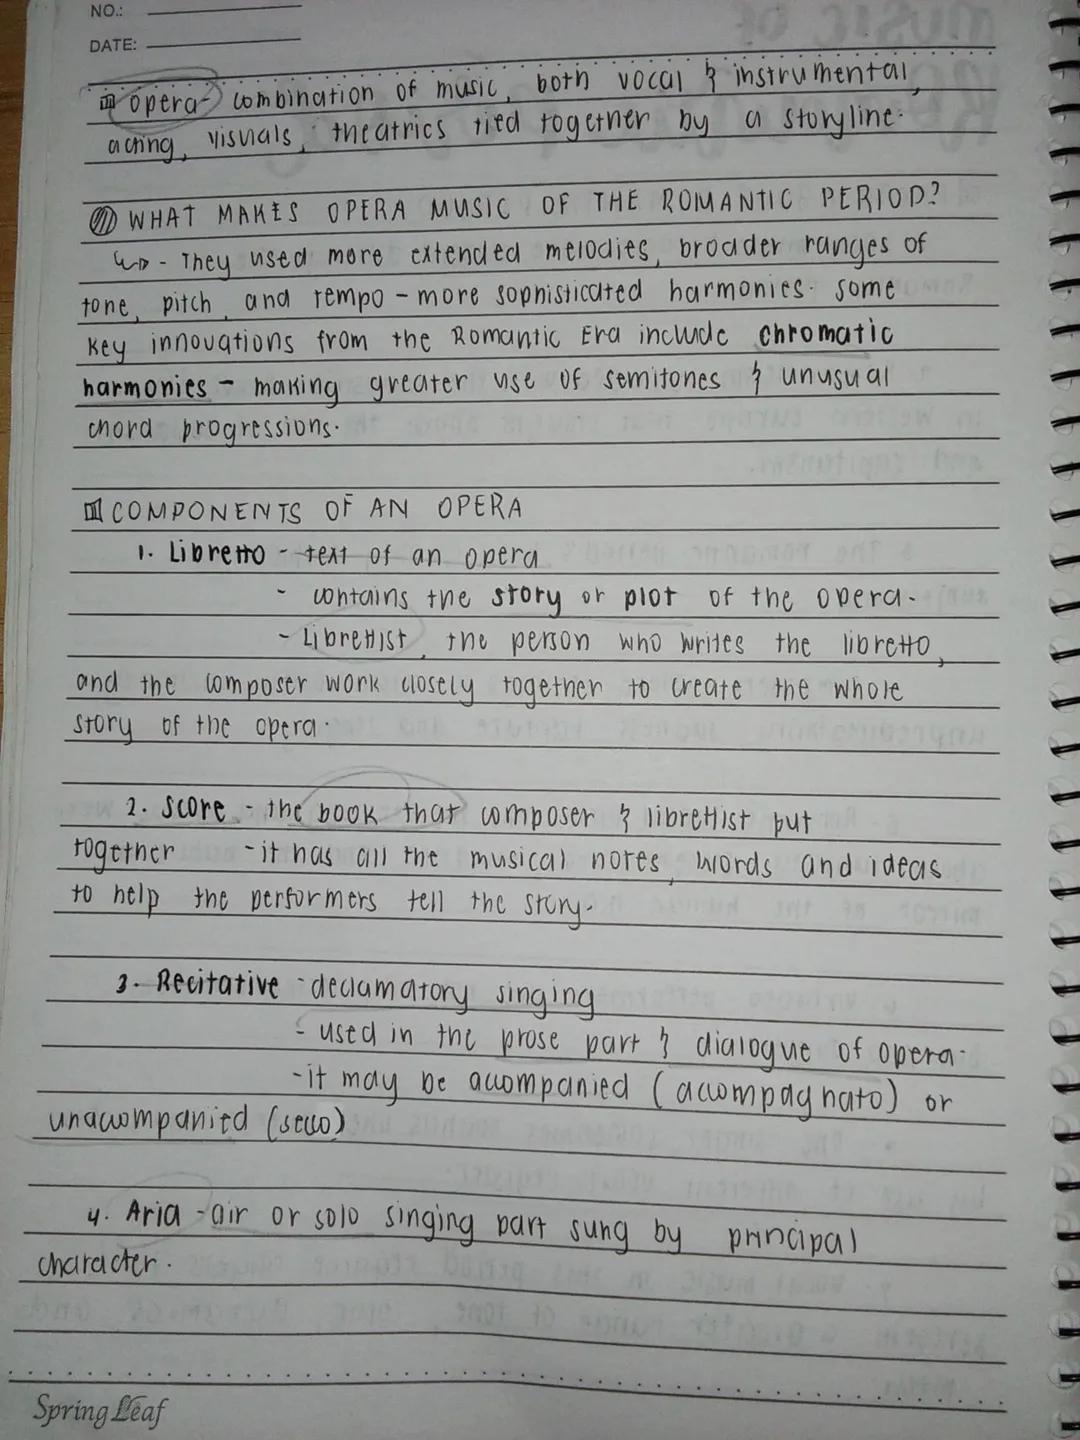 NO.:
DATE:
opera - combination of music, both vocal & instrumental,
acting, visuals, theatrics tied together by a storyline.
WHAT MAKES OPERA MUSIC OF THE ROMANTIC PERIOD?
- They used more extended melodies, broader ranges of
tone, pitch, and tempo - more sophisticated harmonies. some
key innovations from the Romantic Era include chromatic
harmonies - making greater use of semitones & unusual
chord progressions.
COMPONENTS OF AN OPERA
1. Libretto - text of an opera
- contains the story or plot of the opera.
- Librettist, the person who writes the libretto,
and the composer work closely together to create the whole
story of the opera.
2. Score - the book that composer & librettist put
together - it has all the musical notes, words and ideas
to help the performers tell the story.
3. Recitative - declamatory singing
- used in the prose part & dialogue of opera.
- it may be accompanied (accompagnato) or
unaccompanied (secco)
4. Aria - air or solo singing part sung by principal
character.
Spring Leaf